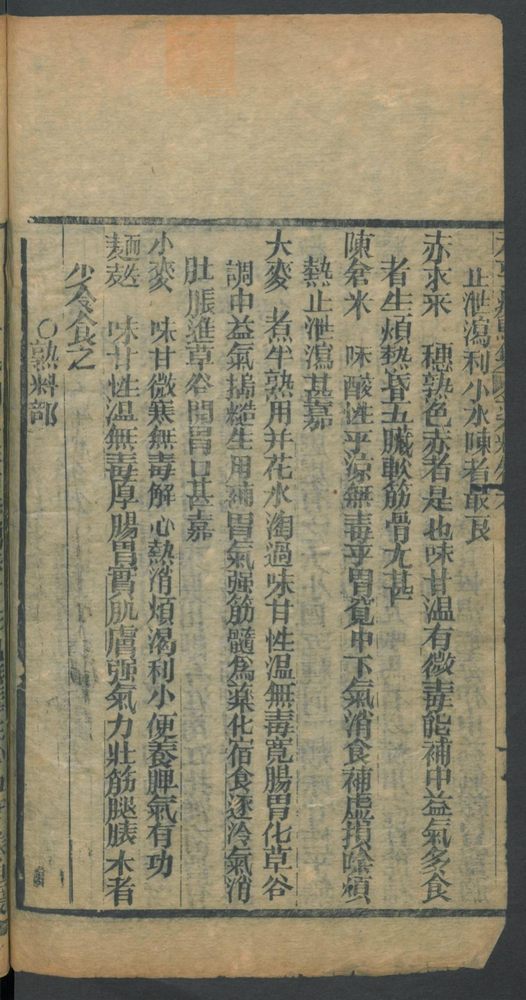 止泄瀉利小水陳者最良
赤求米 穗熟色赤者是也味甘温有微毒能補中益氣多食
者生煩熱昏五臟軟筋骨尤甚
陳倉米 味酸性平凉無毒平胃寛中下氣消食補虚損除煩
熱止泄瀉甚嘉
大麥 煮半熟用井花水淘過味甘性温無毒寛腸胃化草谷
調中益氣搗糙生用補胃氣强筋髓為藥化宿食逐冷氣消
肚脹進草谷開胃口甚嘉
小麥 味甘微寒無毒解心熱消煩渴利小便養脾氣有功
麵麩 味甘性温無毒厚腸胃實肌膚强氣力壯筋腿膁水者
少余食之
○熟料部